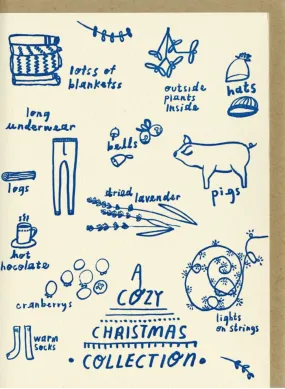 lotss of
blanketss
outside
plants
inside
hats
long
underwear
bells
pigs
logs
dried lavender
hot
hocolate
cranberrys
lights
on strings
warm
socks
A
COZY
CHRISTMAS
• COLLECTION •